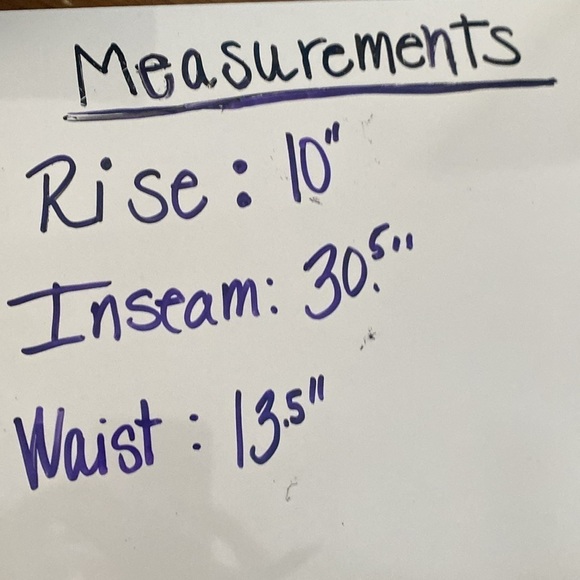 Measurements
Rise: 10"
Inseam: 30.5"
Waist: 13.5"